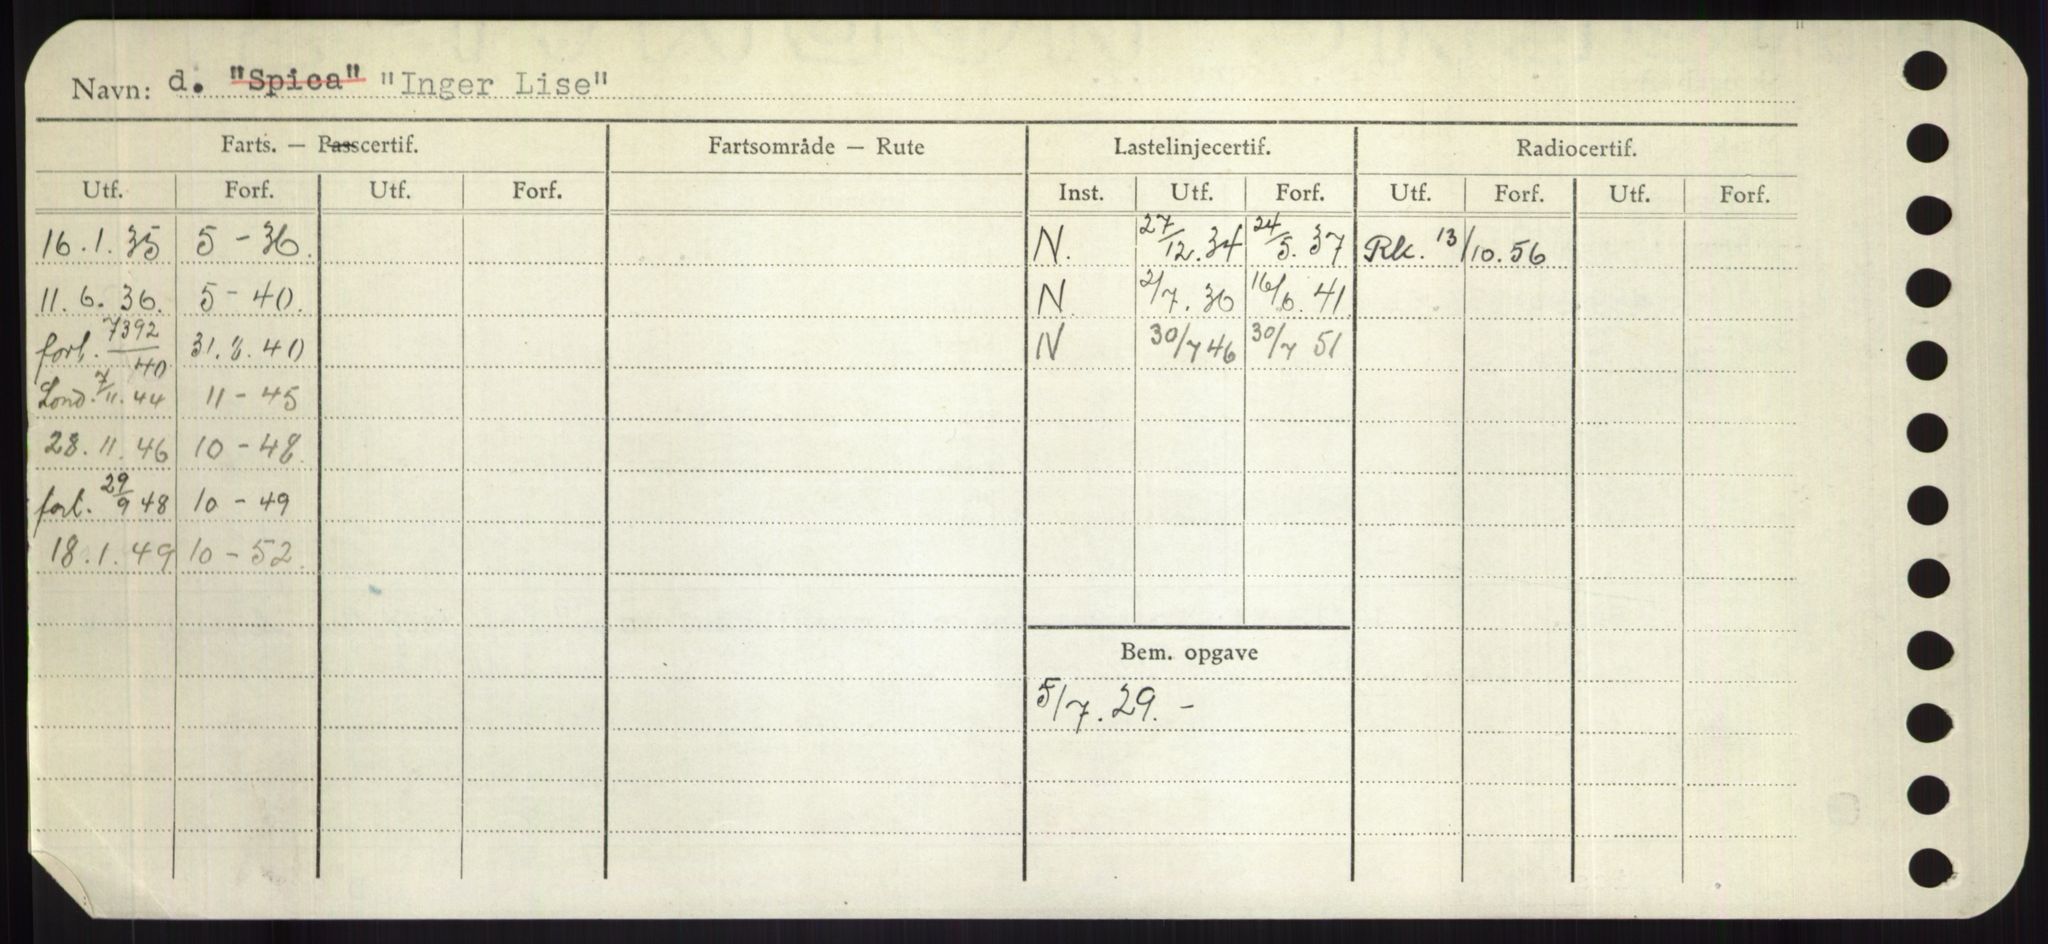 Navn: d. "Spica" "Inger Lise"
Farts. — Passcertif. Fartsområde — Rute Lastelinjecertif. Radiocertif.
Utf. Forf. Utf. Forf. Inst. Utf. Forf. Utf. Forf. Utf. Forf.
16.1.35 5 - 36. N. 27/12.34 24/5.37 Rk. 13/10.56
11.6.36. 5 - 40. N 2/7.36 16/6.41
forl. 7392/40 31.8.40 N 30/7 46 30/7 51
Lond. 7/11.44 11 - 45
28.11.46 10 - 48.
forl. 29/9 48 10 - 49
18.1.49 10 - 52.
Bem. opgave
5/7.29. -